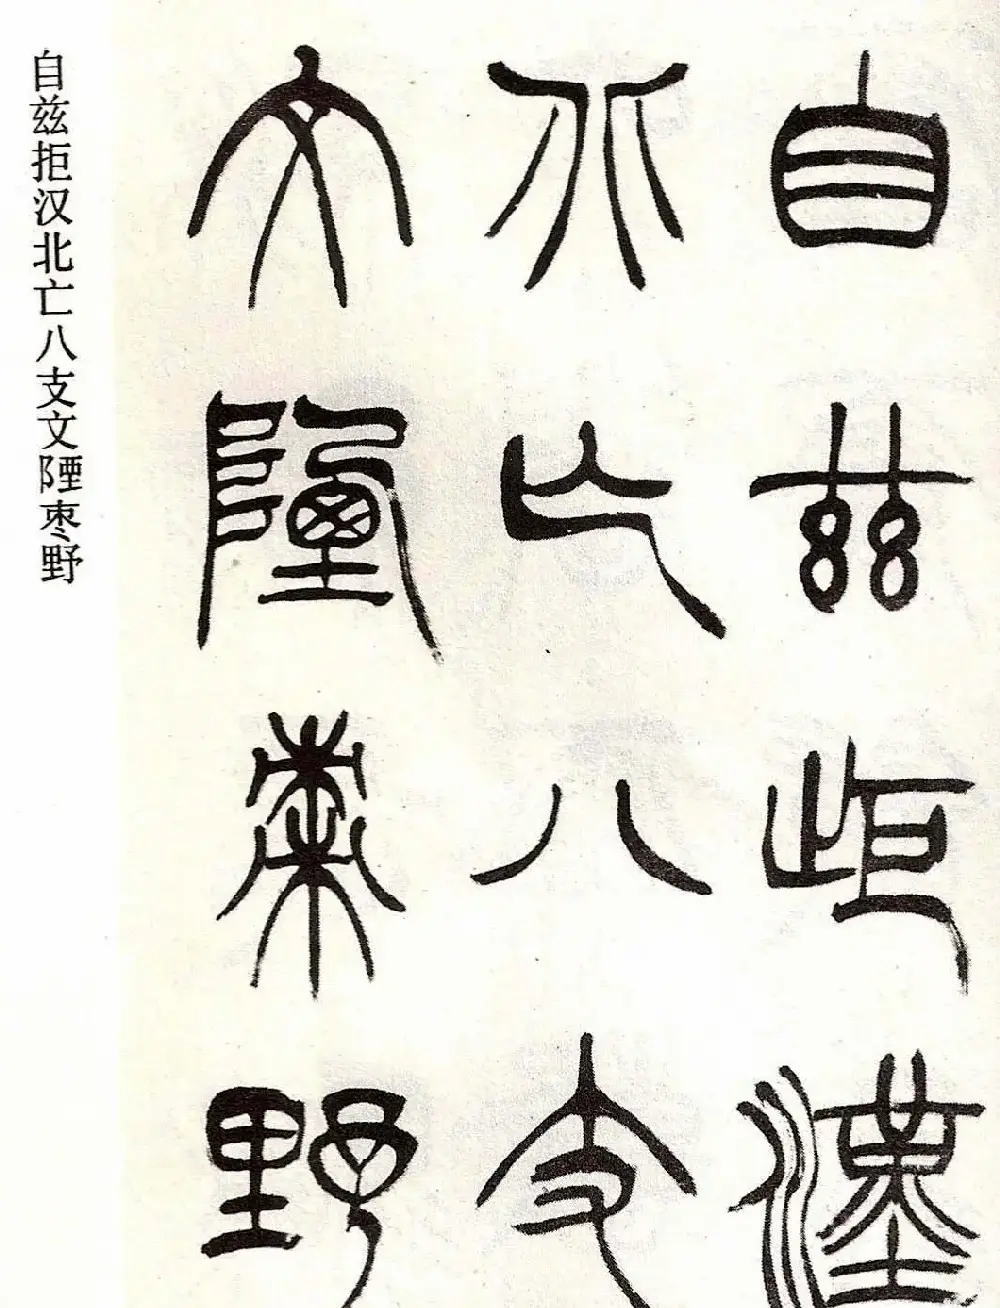 自兹距漢
北亡八支
文陻棗野
自兹拒汉北亡八支文陻枣野